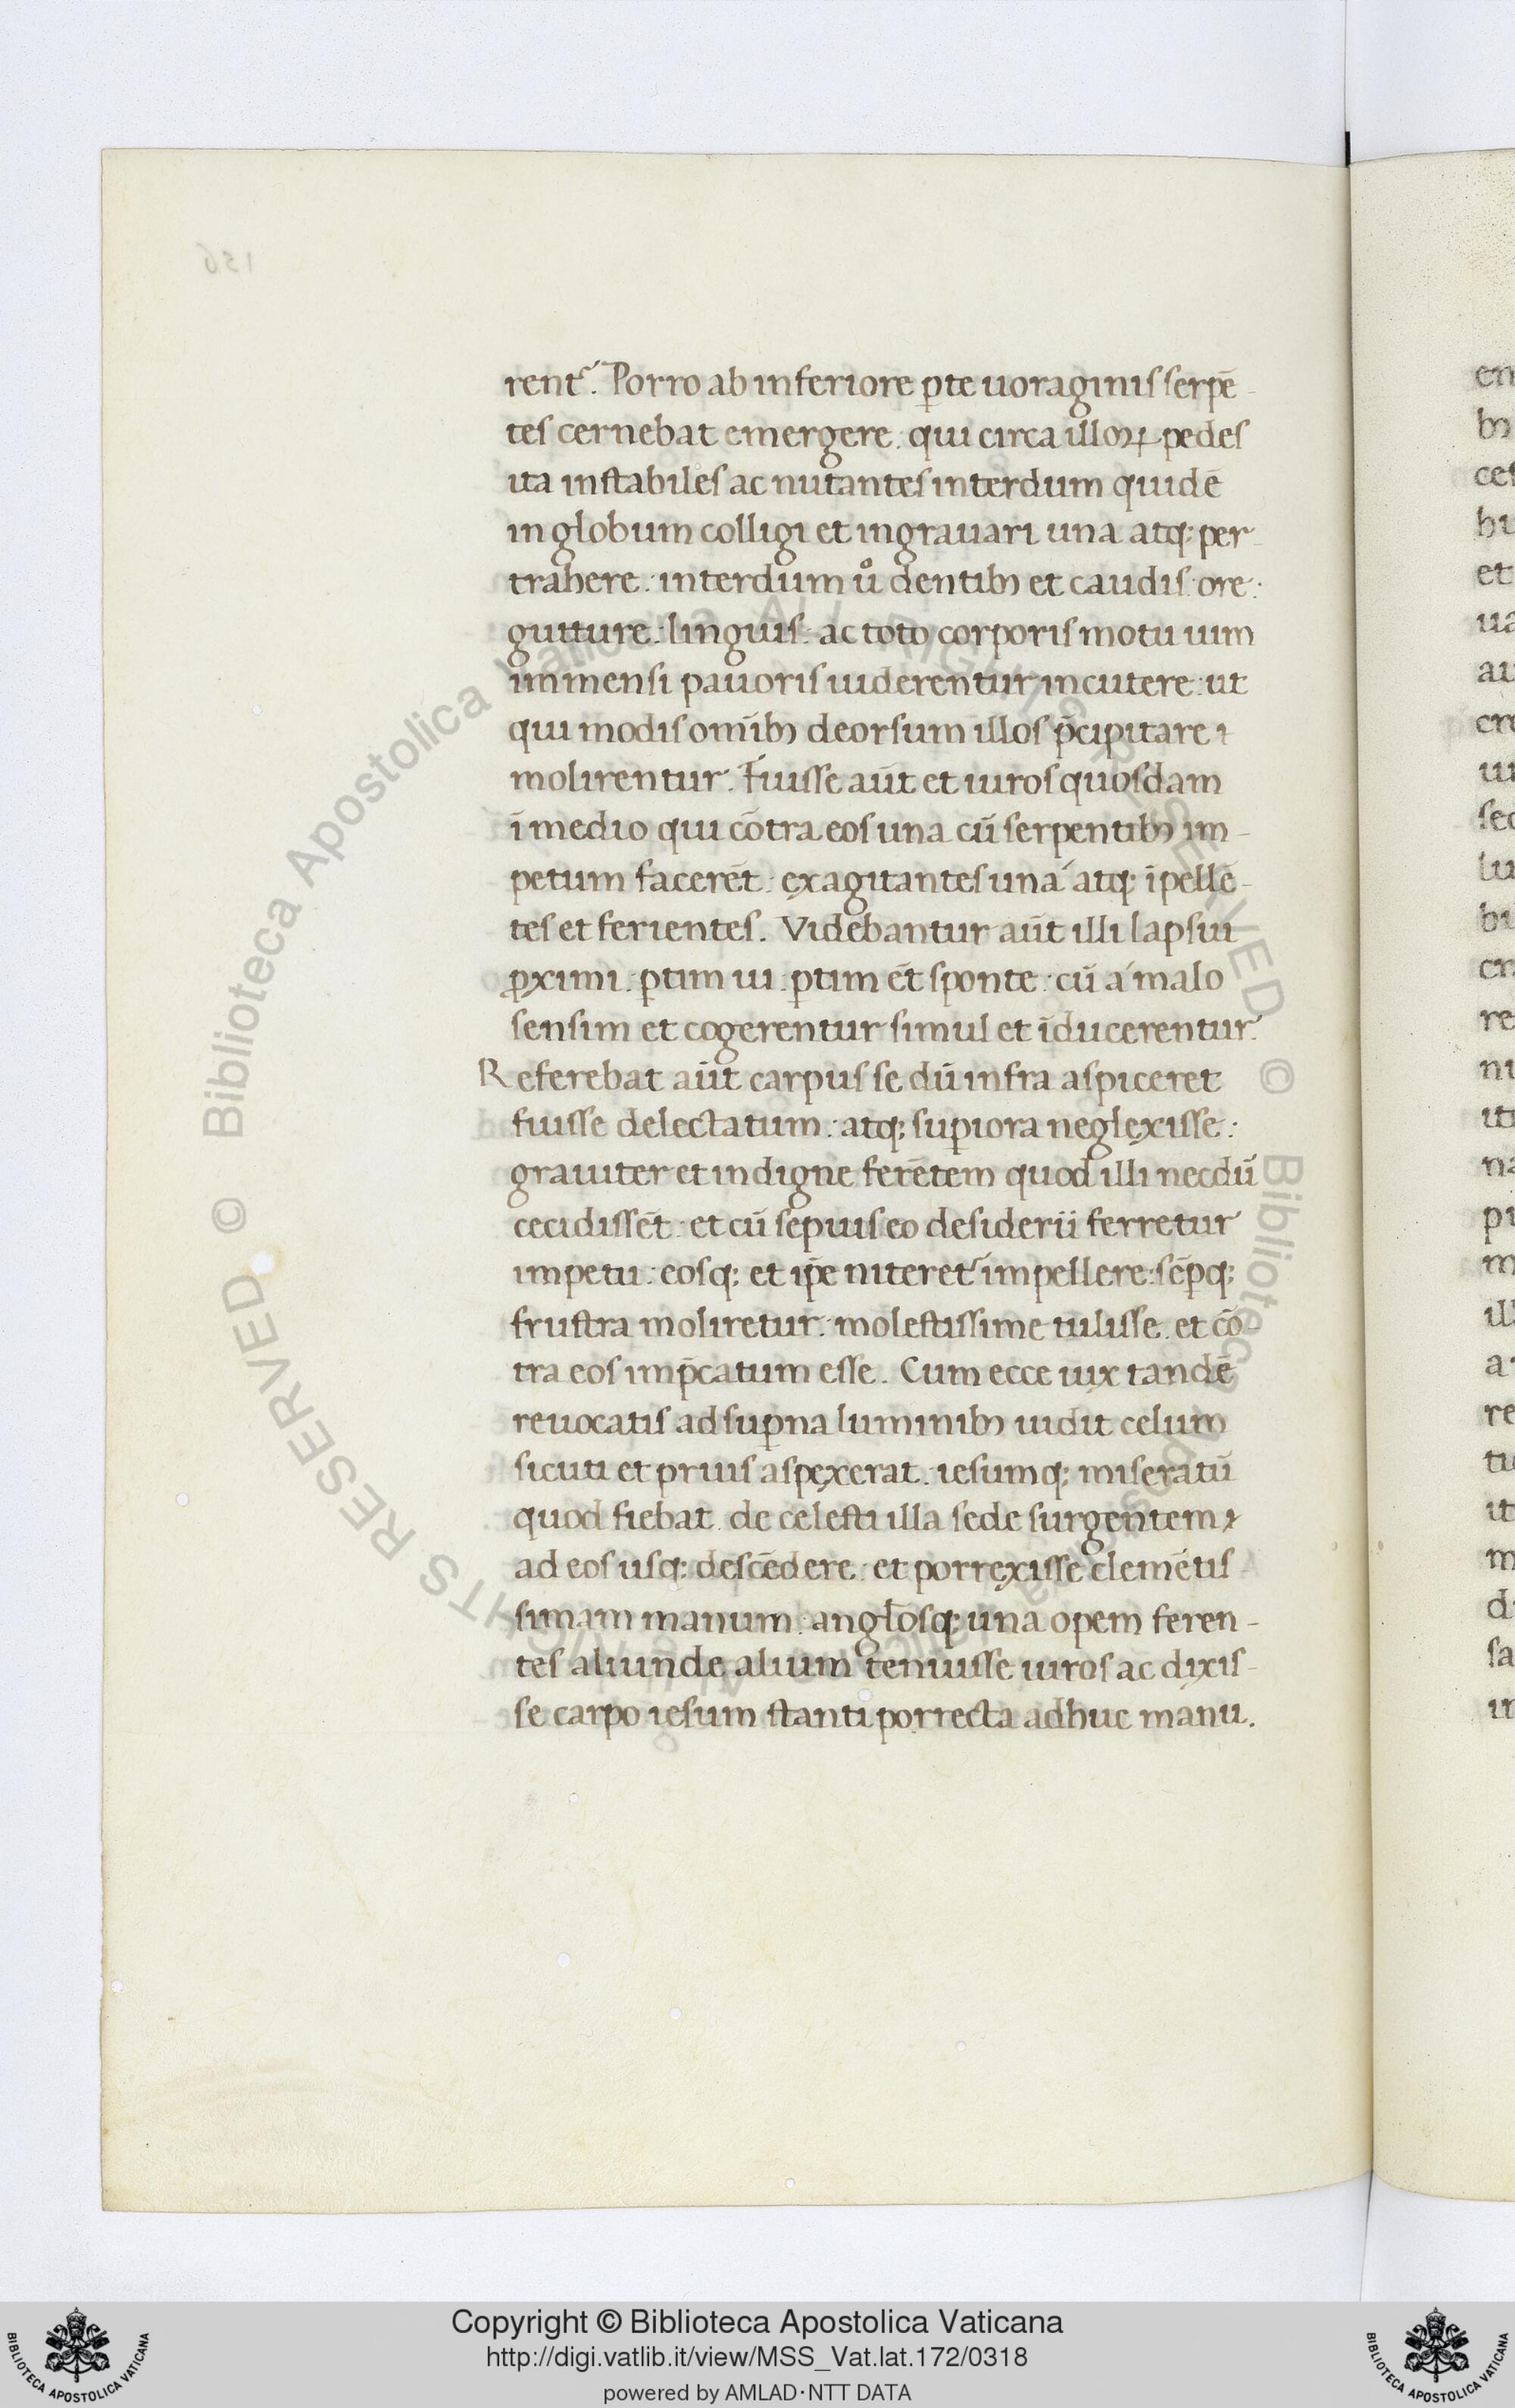 rent᷑. Porro ab inferiore ꝑte uoraginis serpē-
tes cernebat emergere. qui circa illoꝝ pedes
ita instabiles ac nutantes interdum quidē
in globum colligi et ingrauari una atq; per-
trahere: interdum uͦ dentibꝫ et caudis: ore:
gutture: linguis: ac toto corporis motu uim
immensi pauoris uiderentur incutere: ut
qui modis omībꝫ deorsum illos p̄cipitare
molirentur. Fuisse aūt et uiros quosdam
ī medio qui cōtra eos una cū serpentibꝫ im-
petum facerēt: exagitantes uná atq; īpellē-
tes et ferientes. Videbantur aūt illi lapsui
ꝓximi: ꝑtim ui: ꝑtim ēt sponte: cū á malo
sensim et cogerentur simul et īducerentur.
Referebat aūt carpus se dū infra aspiceret
fuisse delectatum: atq; suꝑiora neglexisse:
grauiter et indigne ferētem quod illi necdū
cecidissēt: et cū sepius eo desiderii ferretur
impetu: eosq; et ip̄e niteret᷑ impellere: sēpq;
frustra moliretur: molestissime tulisse. et cō-
tra eos imp̄catum esse. Cum ecce uix tandē
reuocatis ad suꝑna luminibꝫ uidit celum
sicuti et prius aspexerat. iesumq; miseratū
quod fiebat. de celesti illa sede surgentem
ad eos usq; descēdere: et porrexisse clemētis
simam manum: angl̄osq; una opem feren-
tes aliunde alium tenuisse uiros ac dixis-
se carpo iesum stanti porrecta adhuc manu.
156
en
bꝫ
ces
hu
et
ua
au
cre
ui
sed
lu
bu
cr
re
ni
iti
na
pr
m
ill
a
re
tu
it
m
d
sa
in
© Biblioteca Apostolica Vaticana ALL RIGHTS RESERVED © Biblioteca Apostolica Vaticana ALL RIGHTS RESERVED
Copyright © Biblioteca Apostolica Vaticana
http://digi.vatlib.it/view/MSS_Vat.lat.172/0318
powered by AMLAD·NTT DATA
BIBLIOTECA APOSTOLICA VATICANA
BIBLIOTECA APOSTOLICA VATICANA